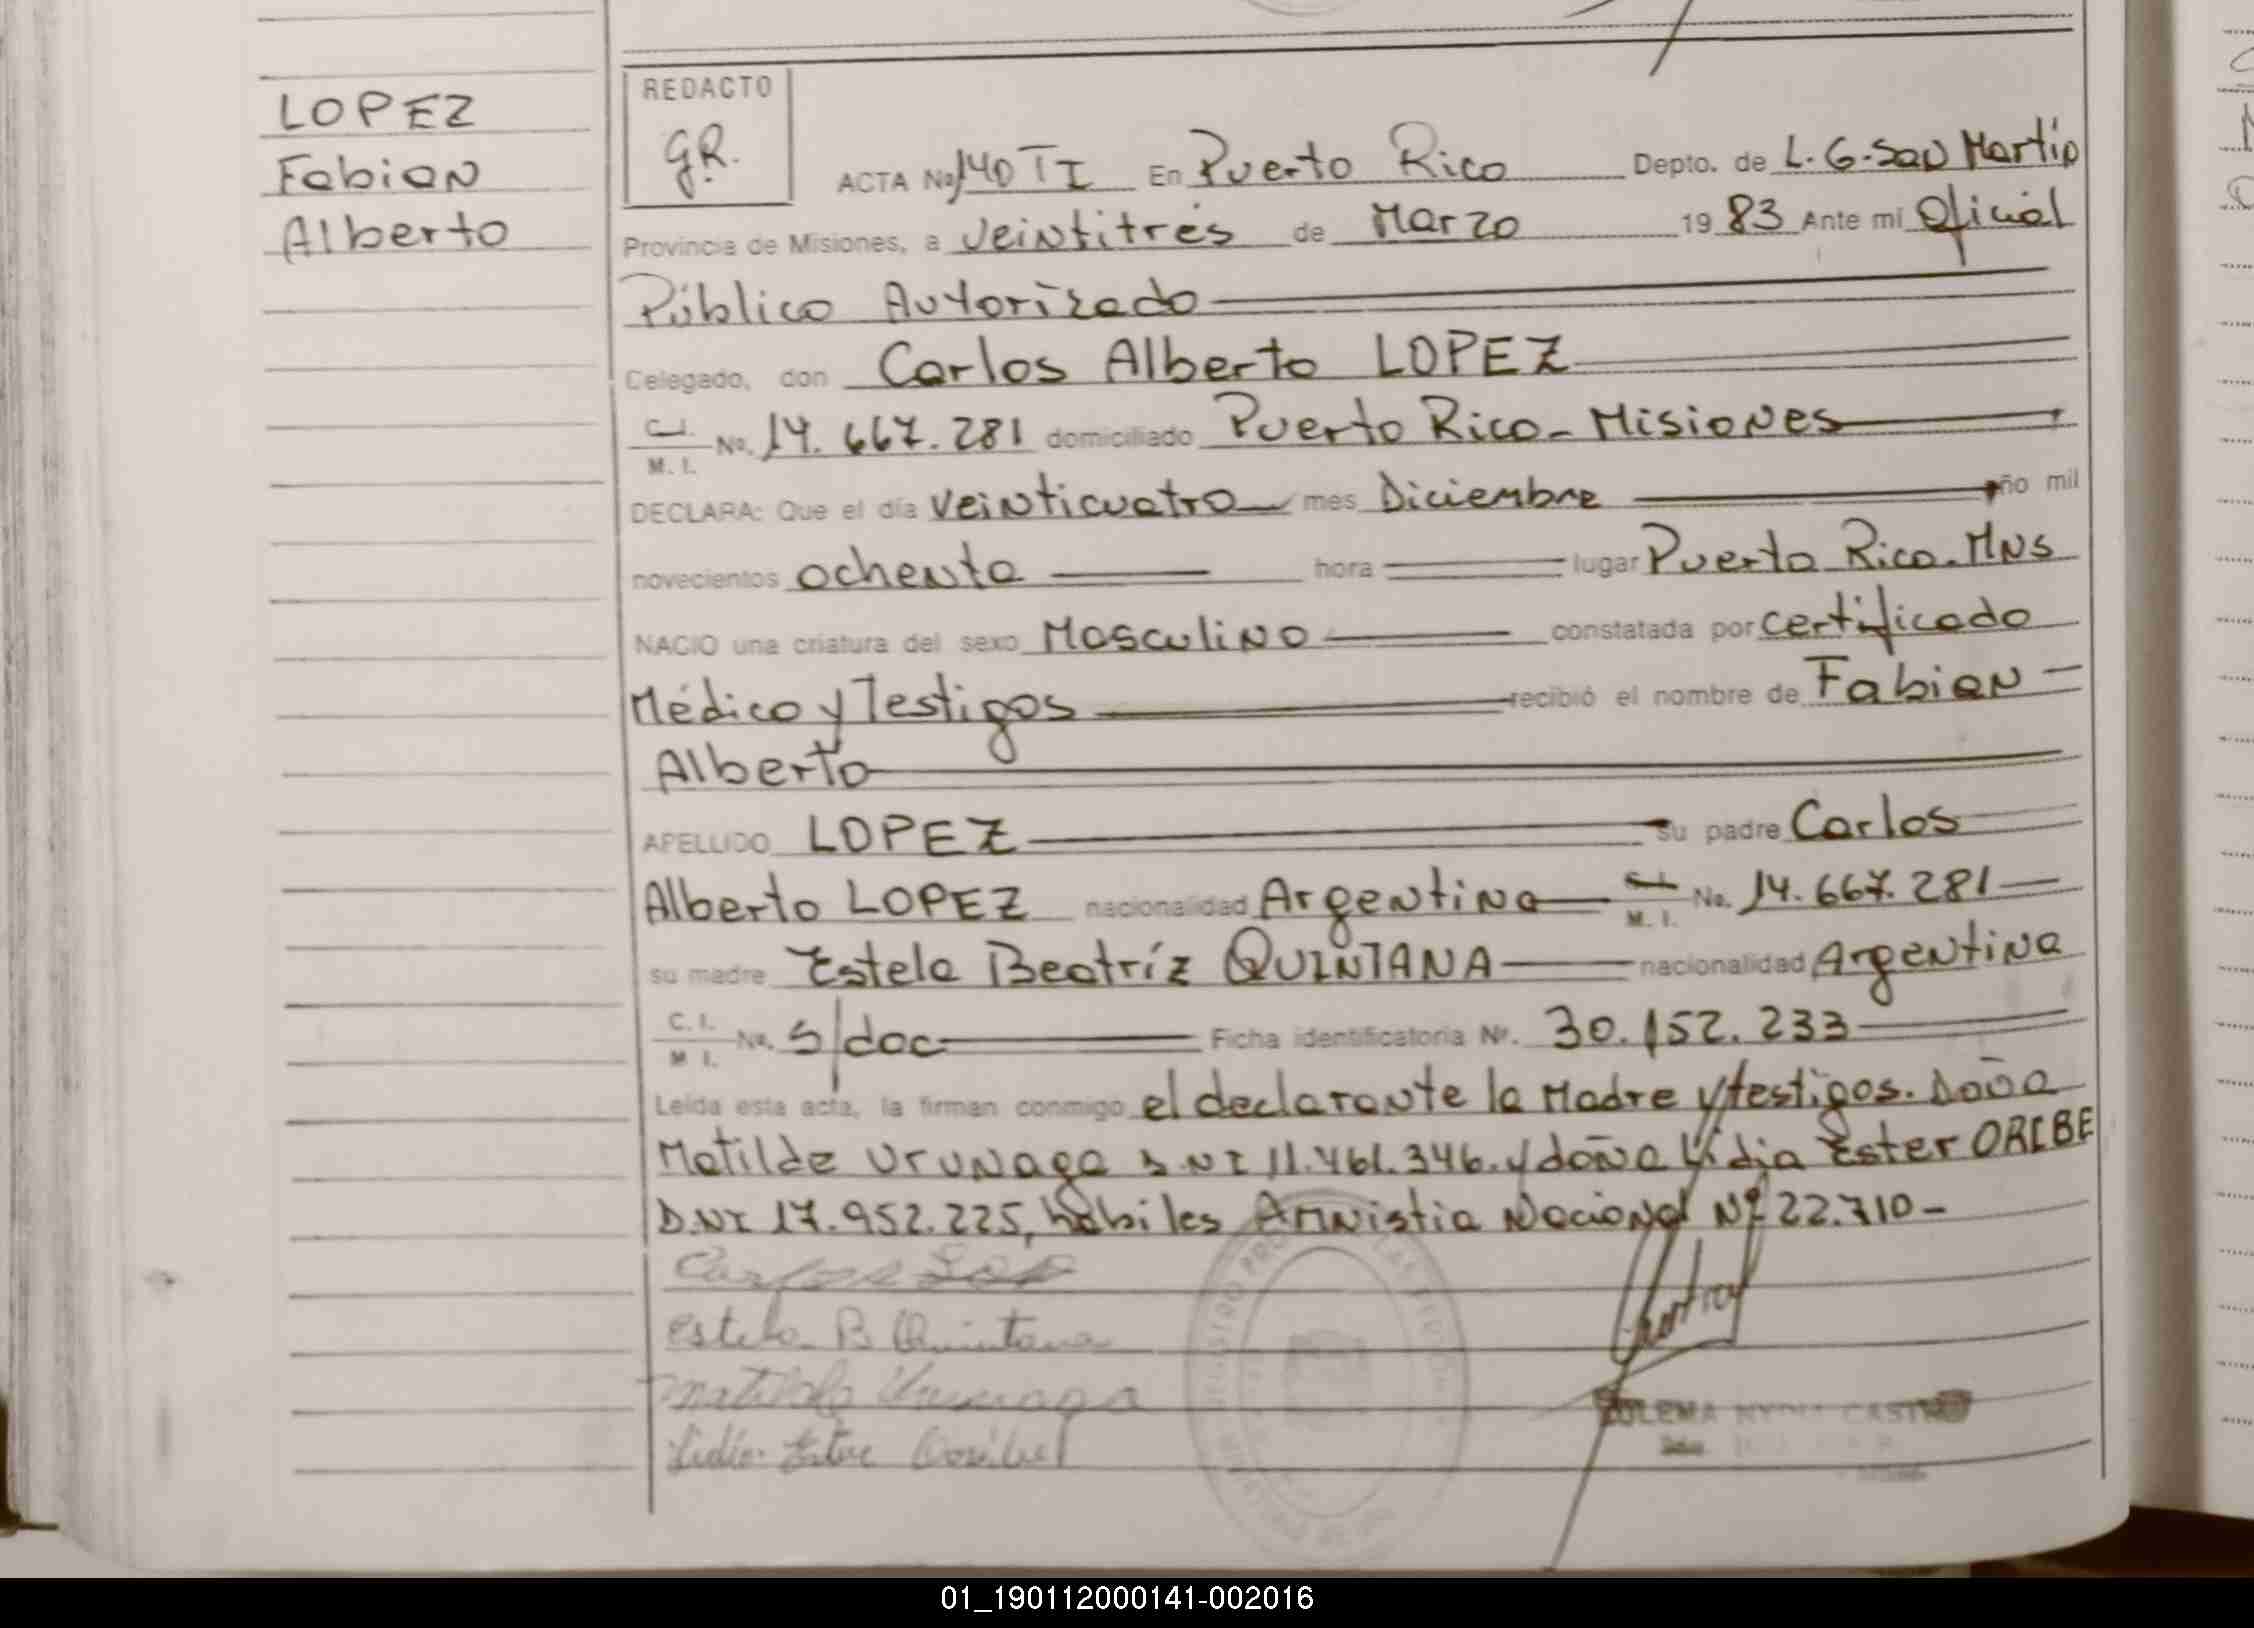 LOPEZ
Fabian
Alberto
REDACTO
G.R.
ACTA No 140 TI En Puerto Rico Depto. de L.G.San Martin
Provincia de Misiones, a veintitrés de Marzo 1983 Ante mi Oficial
Público Autorizado
Celegado, don Carlos Alberto LOPEZ
C.I. M.I. No. 14.667.281 domiciliado Puerto Rico-Misiones
DECLARA: Que el día veinticuatro mes Diciembre año mil
novecientos ochenta hora lugar Puerto Rico.MNS
NACIO una criatura del sexo Masculino constatada por certificado
Médico y Testigos recibió el nombre de Fabian
Alberto
APELLIDO LOPEZ su padre Carlos
Alberto LOPEZ nacionalidad Argentina C.I. M.I. No. 14.667.281
su madre Estela Beatríz QUINTANA nacionalidad Argentina
C.I. M.I. No. s/doc Ficha identificatoria Nº. 30.152.233
Leída esta acta, la firman conmigo el declarante la Madre y testigos. Doña
Matilde Urunaga D.N.I 11.461.346. y doña Lidia Ester ORIBE
D.N.I 17.952.225, hábiles Amnistia Nacional Nº 22.710-
Carlos
Estela B Quintana
Matilde Urunaga
Lidia Ester
CASTRO
01_190112000141-002016